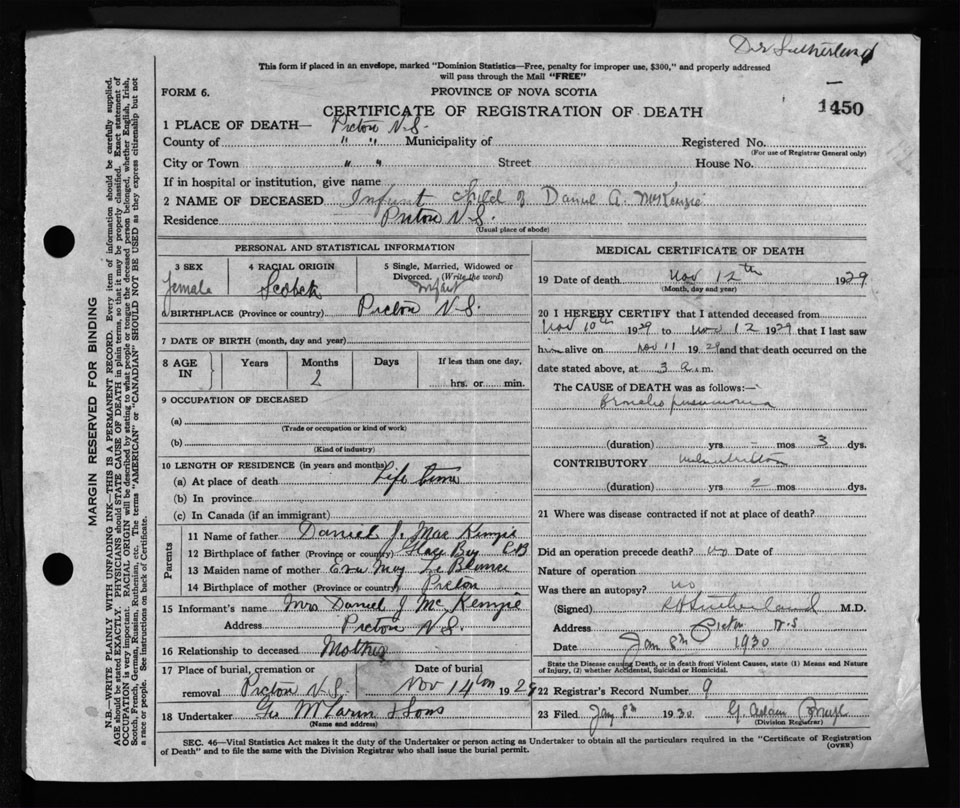 Dr Sutherland
This form if placed in an envelope, marked "Dominion Statistics—Free, penalty for improper use, $300," and properly addressed
will pass through the Mail "FREE"
FORM 6.
PROVINCE OF NOVA SCOTIA
1450
CERTIFICATE OF REGISTRATION OF DEATH
1 PLACE OF DEATH— Pictou N.S.
County of " " Municipality of Registered No.
(For use of Registrar General only)
City or Town " " Street House No.
If in hospital or institution, give name
2 NAME OF DECEASED Infant child of Daniel A. McKenzie
Residence Pictou N.S.
(Usual place of abode)
PERSONAL AND STATISTICAL INFORMATION
3 SEX
Female
4 RACIAL ORIGIN
Scotch
5 Single, Married, Widowed or
Divorced. (Write the word)
Infant
6 BIRTHPLACE (Province or country) Pictou N.S.
7 DATE OF BIRTH (month, day and year)
8 AGE IN
Years
Months
2
Days
If less than one day,
hrs. or min.
9 OCCUPATION OF DECEASED
(a)
(Trade or occupation or kind of work)
(b)
(Kind of industry)
10 LENGTH OF RESIDENCE (in years and months)
(a) At place of death Life time
(b) In province
(c) In Canada (if an immigrant)
Parents
11 Name of father Daniel J. MacKenzie
12 Birthplace of father (Province or country) Glace Bay C.B
13 Maiden name of mother Eva May Le Blanc
14 Birthplace of mother (Province or country) Pictou
15 Informant's name Mrs Daniel J McKenzie
Address Pictou N.S.
16 Relationship to deceased Mother
17 Place of burial, cremation or
removal Pictou N.S.
Date of burial
Nov 14th 1929
18 Undertaker Geo McLaren & Sons
(Name and address)
MEDICAL CERTIFICATE OF DEATH
19 Date of death Nov 12th 1929
(Month, day and year)
20 I HEREBY CERTIFY that I attended deceased from
Nov 10th 1929 to Nov 12 1929 that I last saw
him alive on Nov 11 1929 and that death occurred on the
date stated above, at 3 a.m.
The CAUSE OF DEATH was as follows:—
Broncho pneumonia
(duration) yrs - mos 3 dys.
CONTRIBUTORY Malnutrition
(duration) yrs 2 mos dys.
21 Where was disease contracted if not at place of death?
Did an operation precede death? no Date of
Nature of operation
Was there an autopsy? no
(Signed) Sutherland M.D.
Address Pictou N.S
Date Jan 8th 1930
State the Disease causing Death, or in death from Violent Causes, state (1) Means and Nature
of Injury, (2) whether Accidental, Suicidal or Homicidal.
22 Registrar's Record Number 9
23 Filed Jan 8th 1930 G. Adam
(Division Registrar)
SEC. 46—Vital Statistics Act makes it the duty of the Undertaker or person acting as Undertaker to obtain all the particulars required in the "Certificate of Registration
of Death" and to file the same with the Division Registrar who shall issue the burial permit.
(OVER)
MARGIN RESERVED FOR BINDING
N.B.—WRITE PLAINLY WITH UNFADING INK—THIS IS A PERMANENT RECORD. Every item of information should be carefully supplied.
AGE should be stated EXACTLY. PHYSICIANS should STATE CAUSE OF DEATH in plain terms, so that it may be properly classified. Exact statement of
OCCUPATION is very important. RACIAL ORIGIN will be described by stating to what people or tongue the deceased person belonged, whether English, Irish,
Scotch, French, German, Russian, Ruthenian, etc. The terms "AMERICAN" or "CANADIAN" SHOULD NOT BE USED as they express citizenship but not
a race or people. See instructions on back of Certificate.